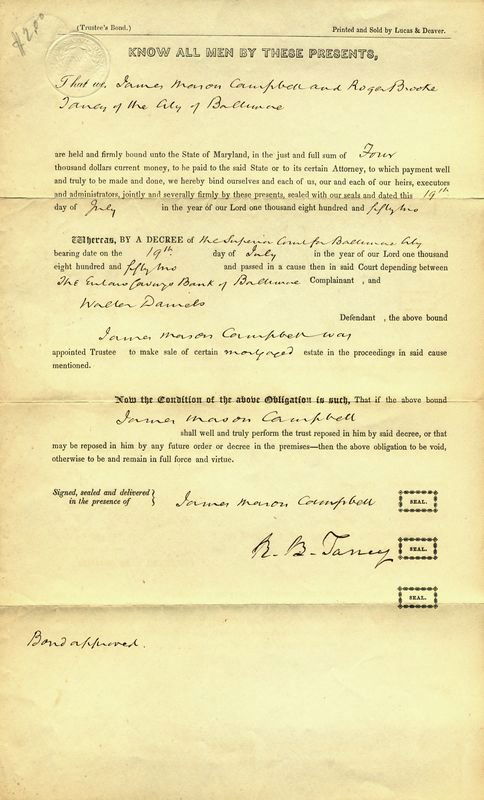 $2.00
(Trustee's Bond.) Printed and Sold by Lucas & Deaver.
KNOW ALL MEN BY THESE PRESENTS,
That we James Mason Campbell and Roger Brooke
Taney of the City of Baltimore
are held and firmly bound unto the State of Maryland, in the just and full sum of Four
thousand dollars current money, to be paid to the said State or to its certain Attorney, to which payment well
and truly to be made and done, we hereby bind ourselves and each of us, our and each of our heirs, executors
and administrators, jointly and severally firmly by these presents, sealed with our seals and dated this 19th
day of July in the year of our Lord one thousand eight hundred and fifty two
Whereas, BY A DECREE of the Superior Court for Baltimore City
bearing date on the 19th day of July in the year of our Lord one thousand
eight hundred and fifty two and passed in a cause then in said Court depending between
The Eutaw Savings Bank of Baltimore Complainant , and
Walter Daniels
Defendant , the above bound
James Mason Campbell was
appointed Trustee to make sale of certain mortgaged estate in the proceedings in said cause
mentioned.
Now the Condition of the above Obligation is such, That if the above bound
James Mason Campbell
shall well and truly perform the trust reposed in him by said decree, or that
may be reposed in him by any future order or decree in the premises—then the above obligation to be void,
otherwise to be and remain in full force and virtue.
Signed, sealed and delivered
in the presence of
James Mason Campbell SEAL.
R. B. Taney SEAL.
SEAL.
Bond approved.